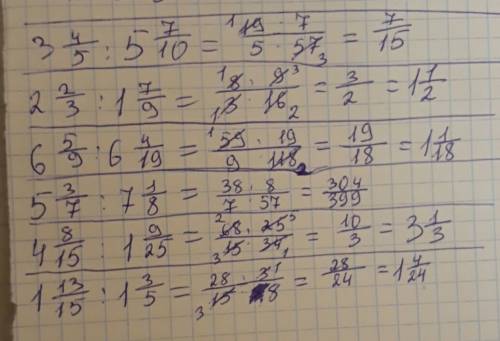 3 4/5 : 5 7/10 = 19 · 7 / 5 · 57 3 = 7/15
2 2/3 : 1 7/9 = 8 · 9 3 / 3 · 16 2 = 3/2 = 1 1/2
6 5/9 : 6 4/19 = 59 · 19 / 9 · 118 2 = 19/18 = 1 1/18
5 3/7 : 7 1/8 = 38 · 8 / 7 · 57 = 304/399
4 8/15 : 1 9/25 = 2 68 · 25 5 / 3 15 · 34 1 = 10/3 = 3 1/3
1 13/15 : 1 3/5 = 28 · 3 1 / 3 15 · 8 = 28/24 = 1 4/24